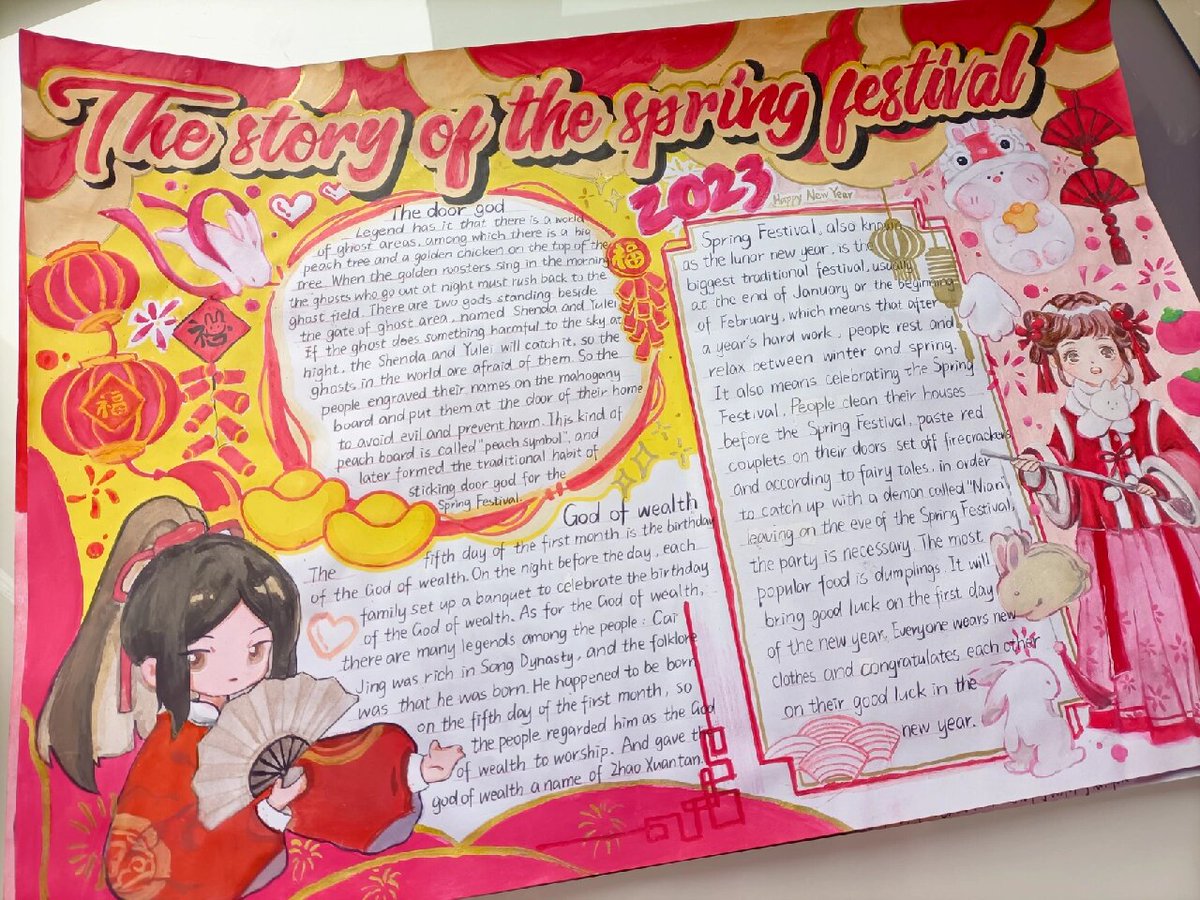 The story of the spring festival
The door god
Legend has it that there is a world
of ghost areas, among which there is a big
peach tree and a golden chicken on the top of the
tree. When the golden roosters sing in the morning
the ghosts who go out at night must rush back to the
ghost field. There are two gods standing beside
the gate of ghost area, named Shenda and Yulei
If the ghost does something harmful to the sky at
hight, the Shenda and Yulei will catch it, so the
ghosts in the world are afraid of them. So the
people engraved their names on the mahogany
board and put them at the door of their home
to avoid evil and prevent harm. This kind of
peach board is called "peach symbol", and
later formed the traditional habit of
sticking door god for the
Spring Festival.
福
福
God of wealth
The fifth day of the first month is the birthday
of the God of wealth. On the night before the day, each
family set up a banquet to celebrate the birthday
of the God of wealth. As for the God of wealth,
there are many legends among the people: Cai
Jing was rich in Song Dynasty, and the folklore
was that he was born. He happened to be born
on the fifth day of the first month, so
the people regarded him as the God
of wealth to worship. And gave the
god of wealth a name of Zhao Xuantan.
2023
Happy New Year
Spring Festival, also known
as the lunar new year, is the
biggest traditional festival, usually
at the end of January or the beginning
of February, which means that after
a year's hard work, people rest and
relax between winter and spring.
It also means celebrating the Spring
Festival. People clean their houses
before the Spring Festival, paste red
couplets on their doors set off firecrackers
and according to fairy tales, in order
to catch up with a demon called "Nian"
leaving on the eve of the Spring Festival,
the party is necessary. The most
popular food is dumplings. It will
bring good luck on the first day
of the new year. Everyone wears new
clothes and congratulates each other
on their good luck in the
new year.